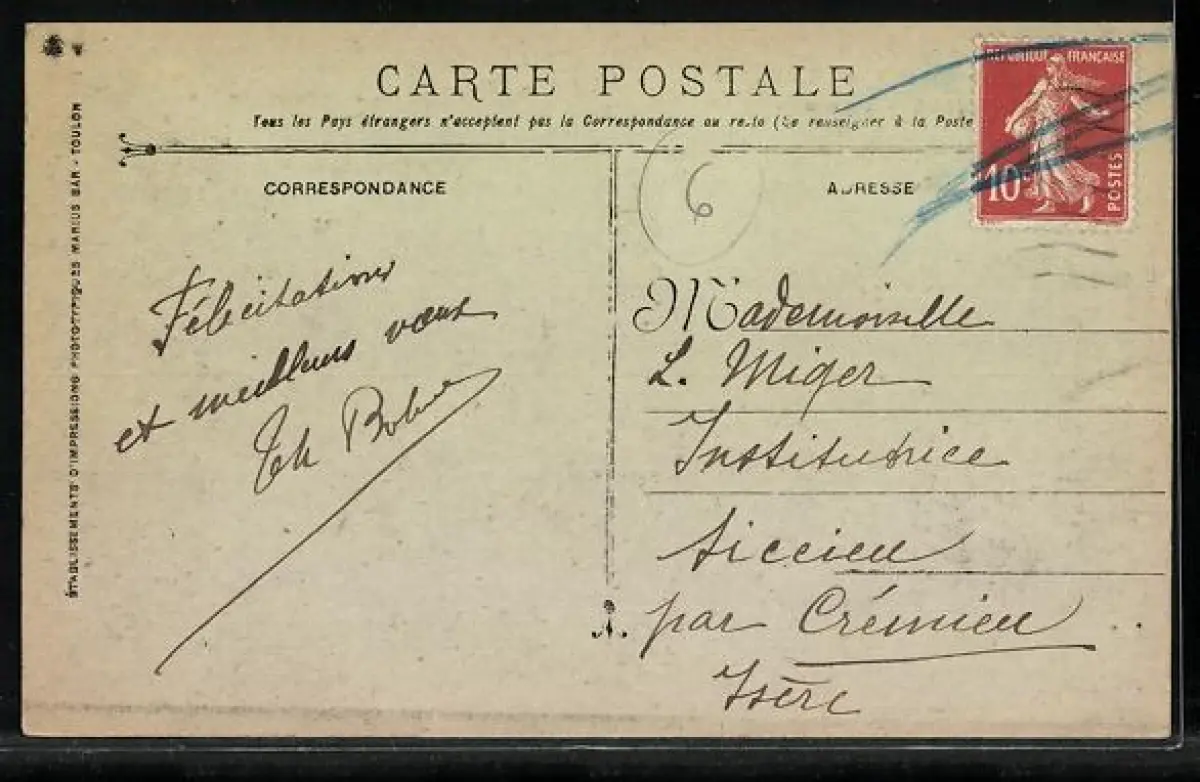 CARTE POSTALE
Tous les Pays étrangers n'acceptent pas la Correspondance au recto (Se renseigner à la Poste
RÉPUBLIQUE FRANÇAISE
10c
POSTES
CORRESPONDANCE
ADRESSE
6
ÉTABLISSEMENTS D'IMPRESSIONS PHOTOTYPIQUES MARIUS BAR - TOULON
Félicitations
et meilleurs vœux
Mademoiselle
L. Miger
Institutrice
Siccieu
par Crémieu
Isère